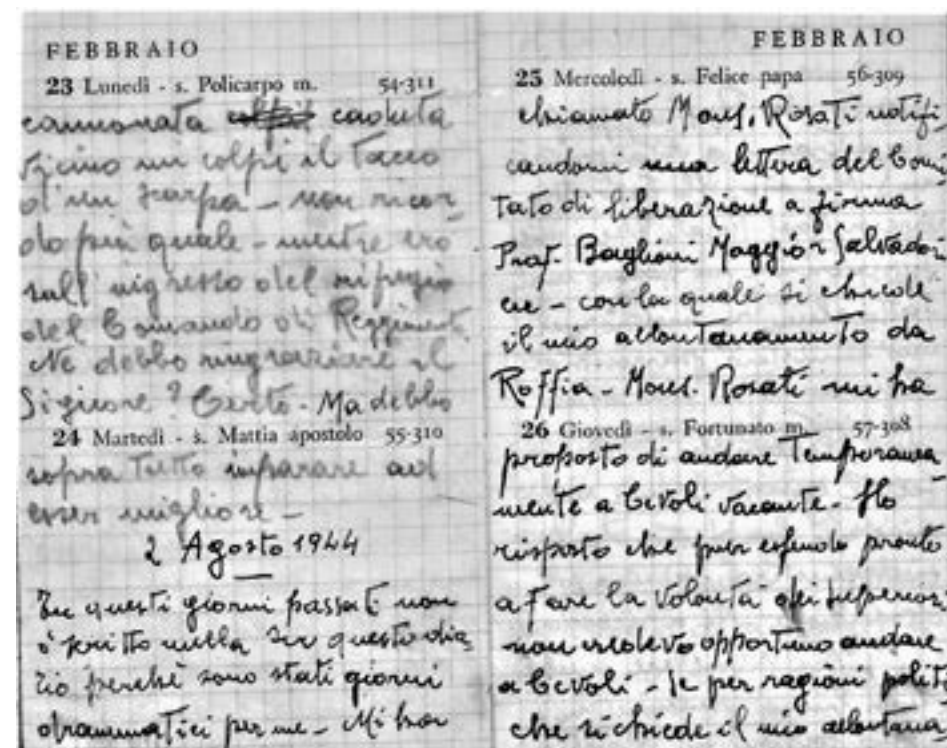 FEBBRAIO
23 Lunedì - s. Policarpo m. 54-311
cannonata caduta
vicino mi colpì il tacco
d'una scarpa - non ricor
do più quale - mentre ero
sull'ingresso del rifugio
del Comando di Reggimento
Ne debbo ringraziare il
Signore? Certo. Ma debbo
24 Martedì - s. Mattia apostolo 55-310
sopra tutto imparare ad
esser migliore -
2 Agosto 1944
In questi giorni passati non
ò scritto nulla su questo dia
rio perchè sono stati giorni
drammatici per me - Mi han
FEBBRAIO
25 Mercoledì - s. Felice papa 56-309
chiamato Mons. Rosati notifi
candomi una lettera del Comi
tato di liberazione a firma
Prof. Baglioni Maggior Salvador
- con la quale si chiede
il mio allontanamento da
Roffia - Mons. Rosati mi ha
26 Giovedì - s. Fortunato m. 57-308
proposto di andare temporanea
mente a Cevoli vacante - Ho
risposto che pur essendo pronto
a fare la volontà dei superiori
non credevo opportuno andare
a Cevoli - Se per ragioni politi
che si chiede il mio allontana